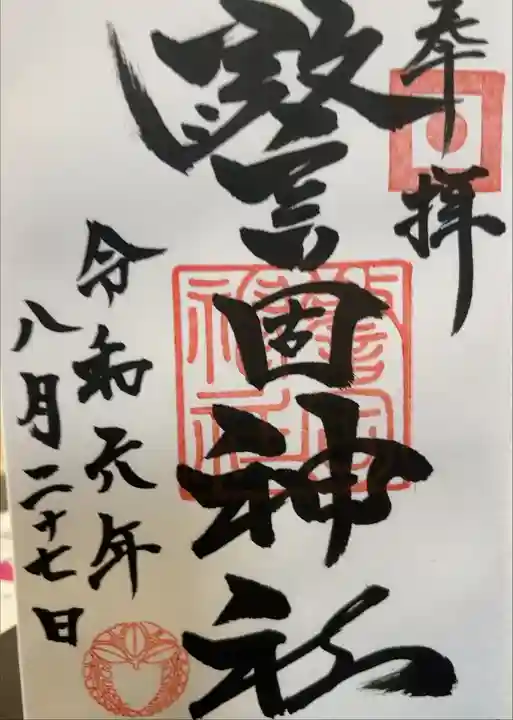 奉拝
警固神社
令和元年
八月二十七日